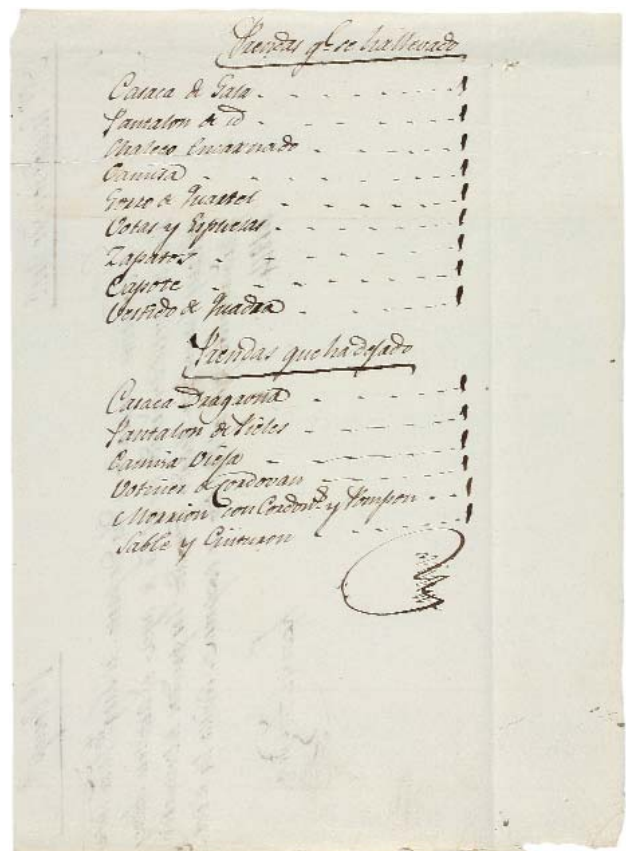 Prendas qe. se ha llevado
Casaca de Gala - - - - - - 1
Pantalon de id - - - - - - 1
Chaleco Encarnado - - - - - 1
Camisa - - - - - - 1
Gorro de Quartel - - - - - 1
Votas y Espuelas - - - - - - 1
Zapatos - - - - - - 1
Capote - - - - - - 1
Vestido de Quadra - - - - 1
Prendas que ha dejado
Casaca Dragona - - - - - 1
Pantalon de Pieles - - - - - 1
Camisa Vieja - - - - - 1
Votines de Cordovan - - - - - 1
Morrion con Cordons. y Pompon - - 1
Sable y Cinturon - - - - 1